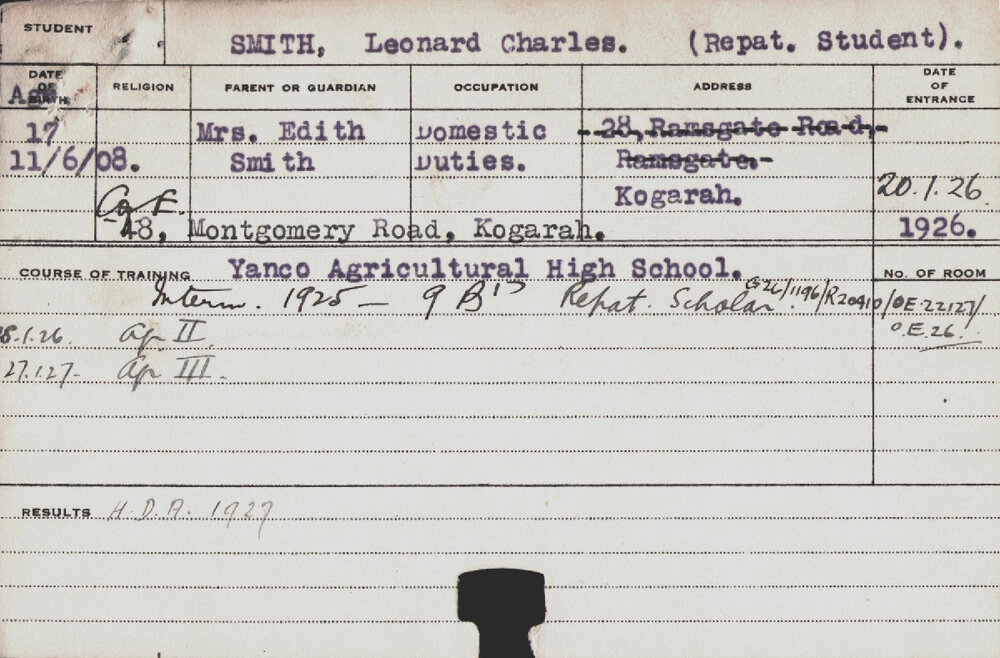 STUDENT SMITH, Leonard Charles. (Repat. Student).
DATE OF BIRTH Age RELIGION PARENT OR GUARDIAN OCCUPATION ADDRESS DATE OF ENTRANCE
17 Mrs. Edith Domestic 28, Ramsgate Road,
11/6/08. Smith Duties. Ramsgate.
C of E. Kogarah. 20.1.26.
48, Montgomery Road, Kogarah. 1926.
COURSE OF TRAINING Yanco Agricultural High School. No. OF ROOM
Interm. 1925 — 9 B's Repat. Scholar. G26/1196/R20410/OE-22127/
O.E.26.
8.1.26. Ag II.
27.1.27. Ag III.
RESULTS H.D.A. 1927